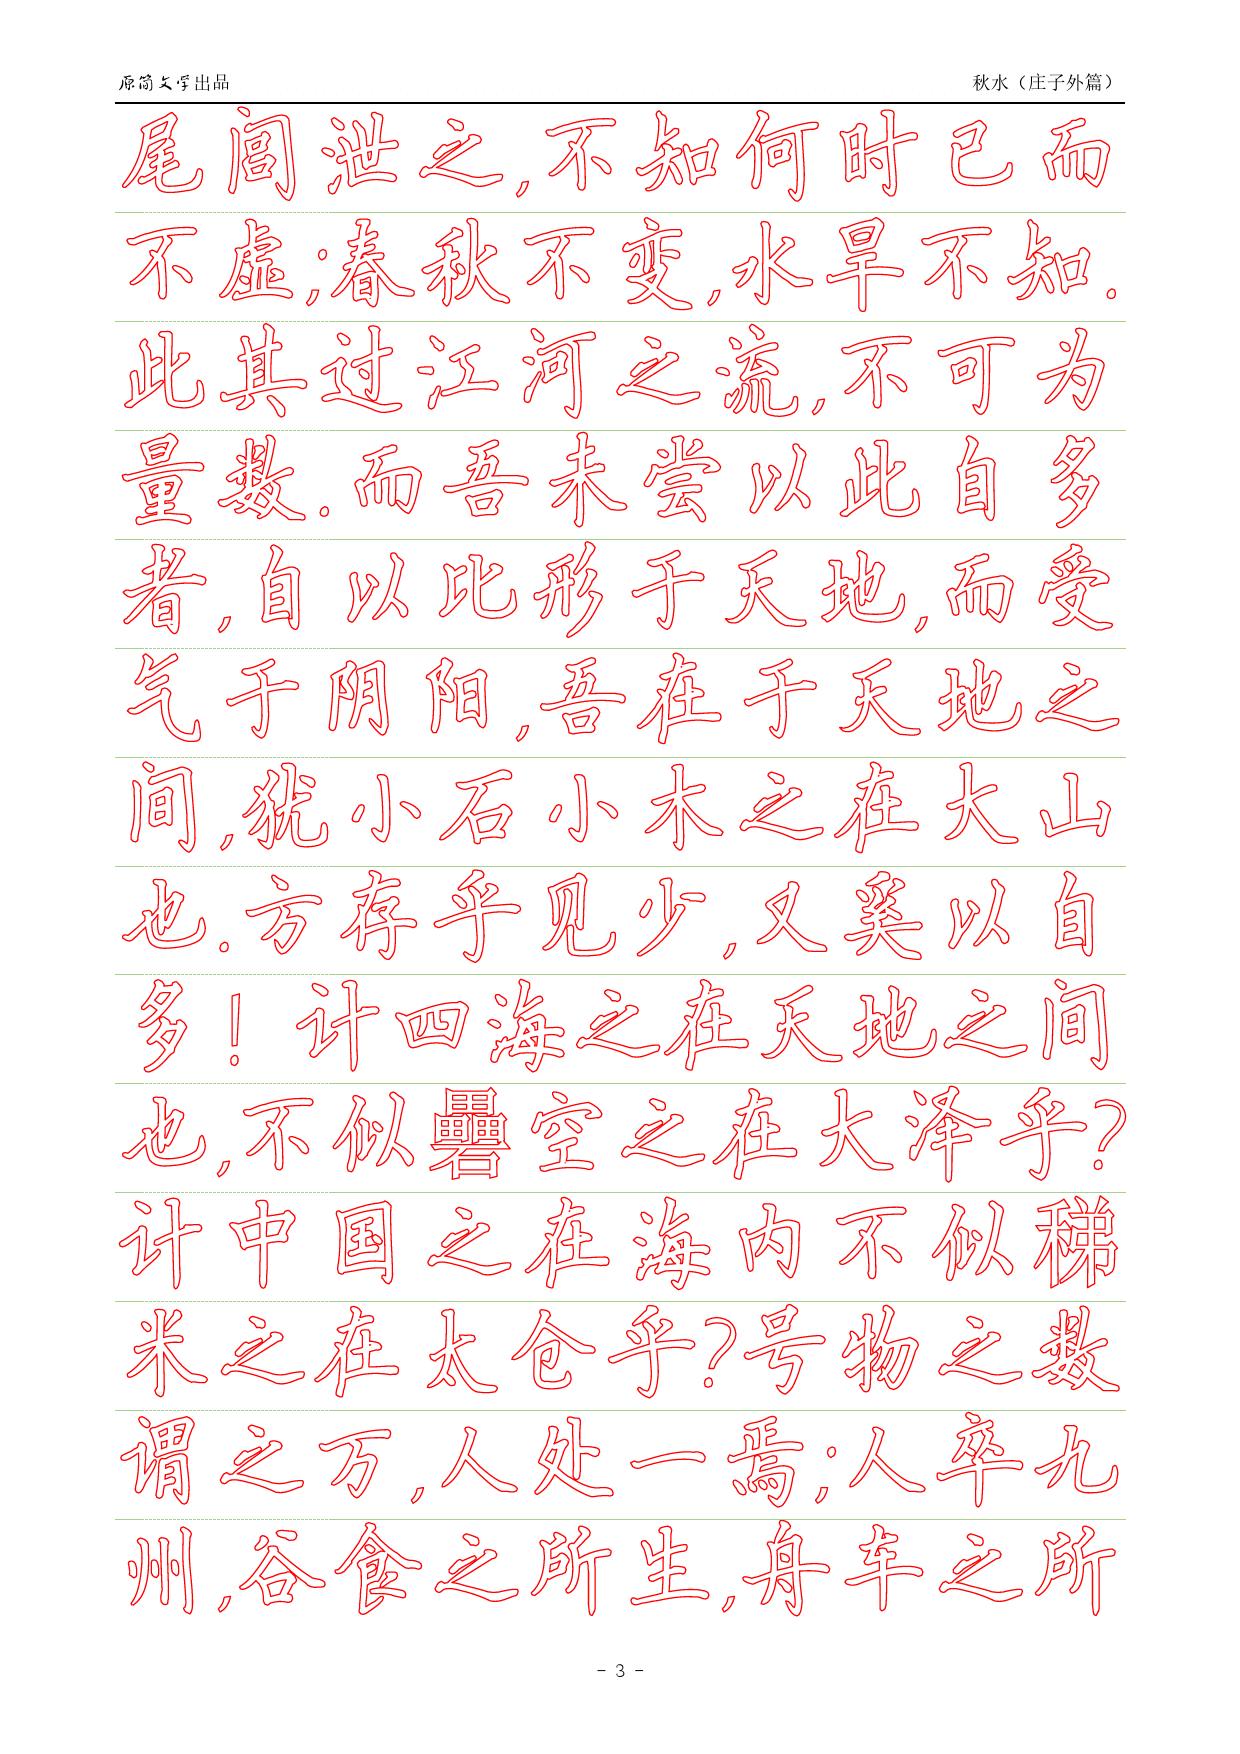 原简文学出品 秋水（庄子外篇）
尾闾泄之,不知何时已而
不虚;春秋不变,水旱不知.
此其过江河之流,不可为
量数.而吾未尝以此自多
者,自以比形于天地,而受
气于阴阳,吾在于天地之
间,犹小石小木之在大山
也.方存乎见少,又奚以自
多! 计四海之在天地之间
也,不似礨空之在大泽乎?
计中国之在海内不似稊
米之在太仓乎?号物之数
谓之万,人处一焉;人卒九
州,谷食之所生,舟车之所
- 3 -